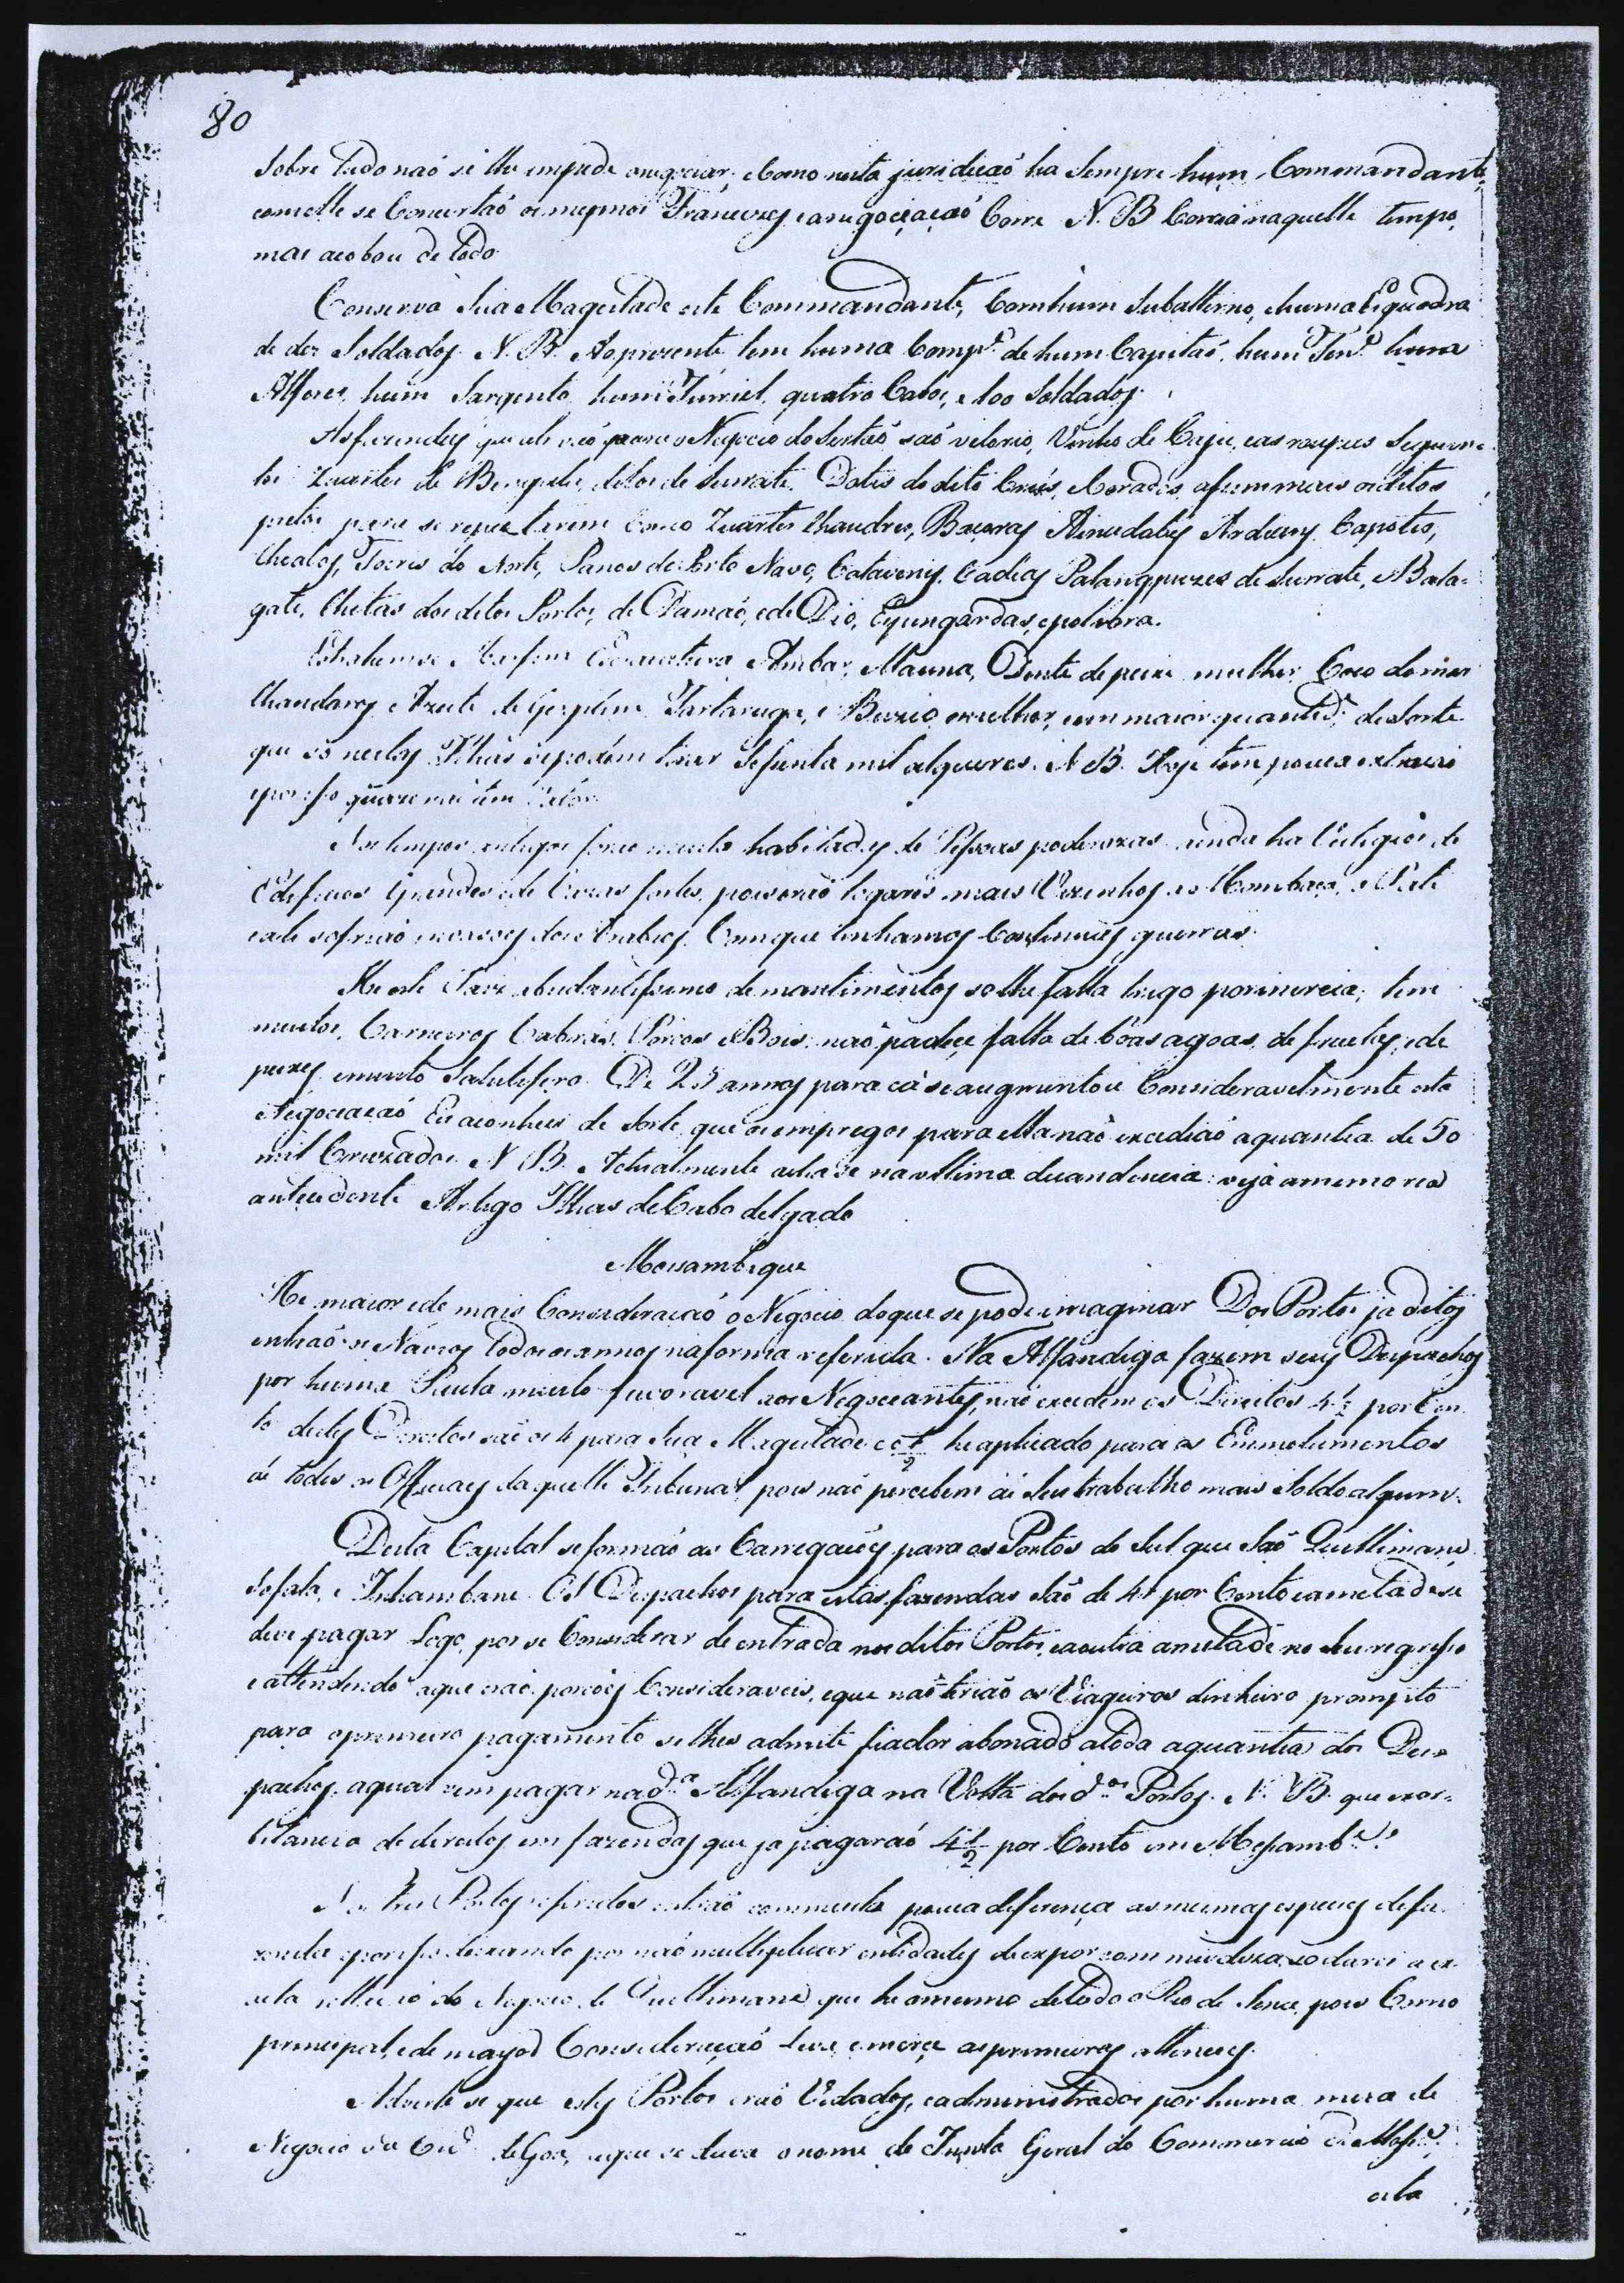 80
Sobre tudo naõ se lhe impede onegociar; e como nesta jurisdicaõ ha Sempre hum Commandante,
com elle se Concertaõ os mesmos Francezes, eanegociaçaõ Corre N. B Corria naquelle tempo,
mas acobou de todo
Conserva Sua Magestade este Commandante, Com hum Subalterno, e huma Esquadra
de dez Soldados. N. B. Ao prezente tem huma Comp.ª de hum Capitaõ, hum Ten.e hum
Alferes, hum Sargento, hum Furriel, quatro Cabos, e 100 Soldados.
As fazendas que ali vaõ para o Negocio do Sertaõ saõ velorio, Vinho de Caju, eas roupas Seguin-
tes Zuartes de Bengala, ditos de Surrate. Dotis do dito Crús, e Corados, assim mais os ditos
pretos para se repuxtarem Como Zuartes Chaudres, Ardians Capotis,
Chealos, do Norte, Panos de Porto Novo, Cotavenis. Cadias Palangpuzes de Surrate, e Bala-
gate, Chitas dos ditos Portos, de Damaõ, e de Dio, Espingardas, epolvora.
Extrahem-se Marfim Ambar, Mauna, Dente de peixe mulher, Coco do mar
Chaudaros Azeite de Gergelim Tartaruga, e Buzio omelhor, eem maior quantid.e de Sorte
que só nestas Ilhas se podem tirar Sessenta mil alqueires. N B. Hoje tem pouca extracaõ
eporisso quaze nai tem Valor
Nos tempos antigos foraõ muito habitadas de Pessoas poderozas ainda ha Vestigios de
Edificios Grandes e de Cazas fortes, pois eraõ logares mais Vezinhos a Mombaça, e Pate
eali sofriaõ invazoes dos Arabios, Com que tinhamos Continuas guerras.
He este Paiz abundantissimo de mantimentos, so lhe falta trigo por inercia; tem
muitos Carneiros Cabras, Porcos e Bois: naõ padece falta de boas agoas, de fructas, e de
peixes emuito Salutifero. De 25 annos para cá se augmentou Consideravelmente esta
Negociacaõ Eu aconheci de Sorte, que os empregos para ella naõ excediaõ aquantia de 50
mil Cruzados. N B. Actualmente acha se na ultima decandencia: veja a memoria
antecedente Artigo Ilhas de Cabo delgado
Mossambique
He maior e de mais Consideracaõ o Negocio do que se pode imaginar Dos Portos ja ditos
entraõ os Navios todos os annos na forma referida. Na Alfandega fazem seus Despachos
por huma Pauta muito favoravel aos Negociantes, naõ excedem os Direitos 4½ por Cen
to destes Direitos saõ os 4 para Sua Magestade eo ½ he aplicado para os Emmolumentos
de todos os Officiaes daquelle Tribunal, pois naõ percebem de Seu trabalho mais Soldo algum.
Desta Capital se formaõ as Carregacoes para os Portos do Sul que Saõ Quillimane
Sofala, e Inhambane Os Despachos para estas fazendas Saõ de 41 por Cento eametade se
deve pagar Logo, por se Considerar de entrada nos ditos Portos, eaoutra ametade no Seu regresso
e attendendo aque saõ porcoes Consideraveis, eque naõ teriaõ os Viageiros dinheiro prompto
para oprimeiro pagamento se lhes admite fiador abonado atoda aquantia dos Des-
pachos, aqual vem pagar na d.ª Alfandega na Volta dos d.os Portos. N. B. que exor-
bitancia de direitos em fazendas que ja pagaraõ 4½ por Cento em Mossamb.e
Nos tres Portos referidos entraõ com muita pouca diferença as mesmas especies de fa-
zendas eporisso deixando por naõ multiplicar entidades de expor com miudeza, so darei a ex-
acta rellacaõ do Negocio de Quillimane que he omesmo de todo o Rio de Sena, pois Como
principal, e de mayor Consideraçaõ deve, emerece as primeiras attencoes.
Advirta se que estes Portos eraõ Vedados, eadministrados por huma meza de
Negocio da Cid.e de Goa, aque se dava onome de Junta Geral do Commercio de Moss.e
esta